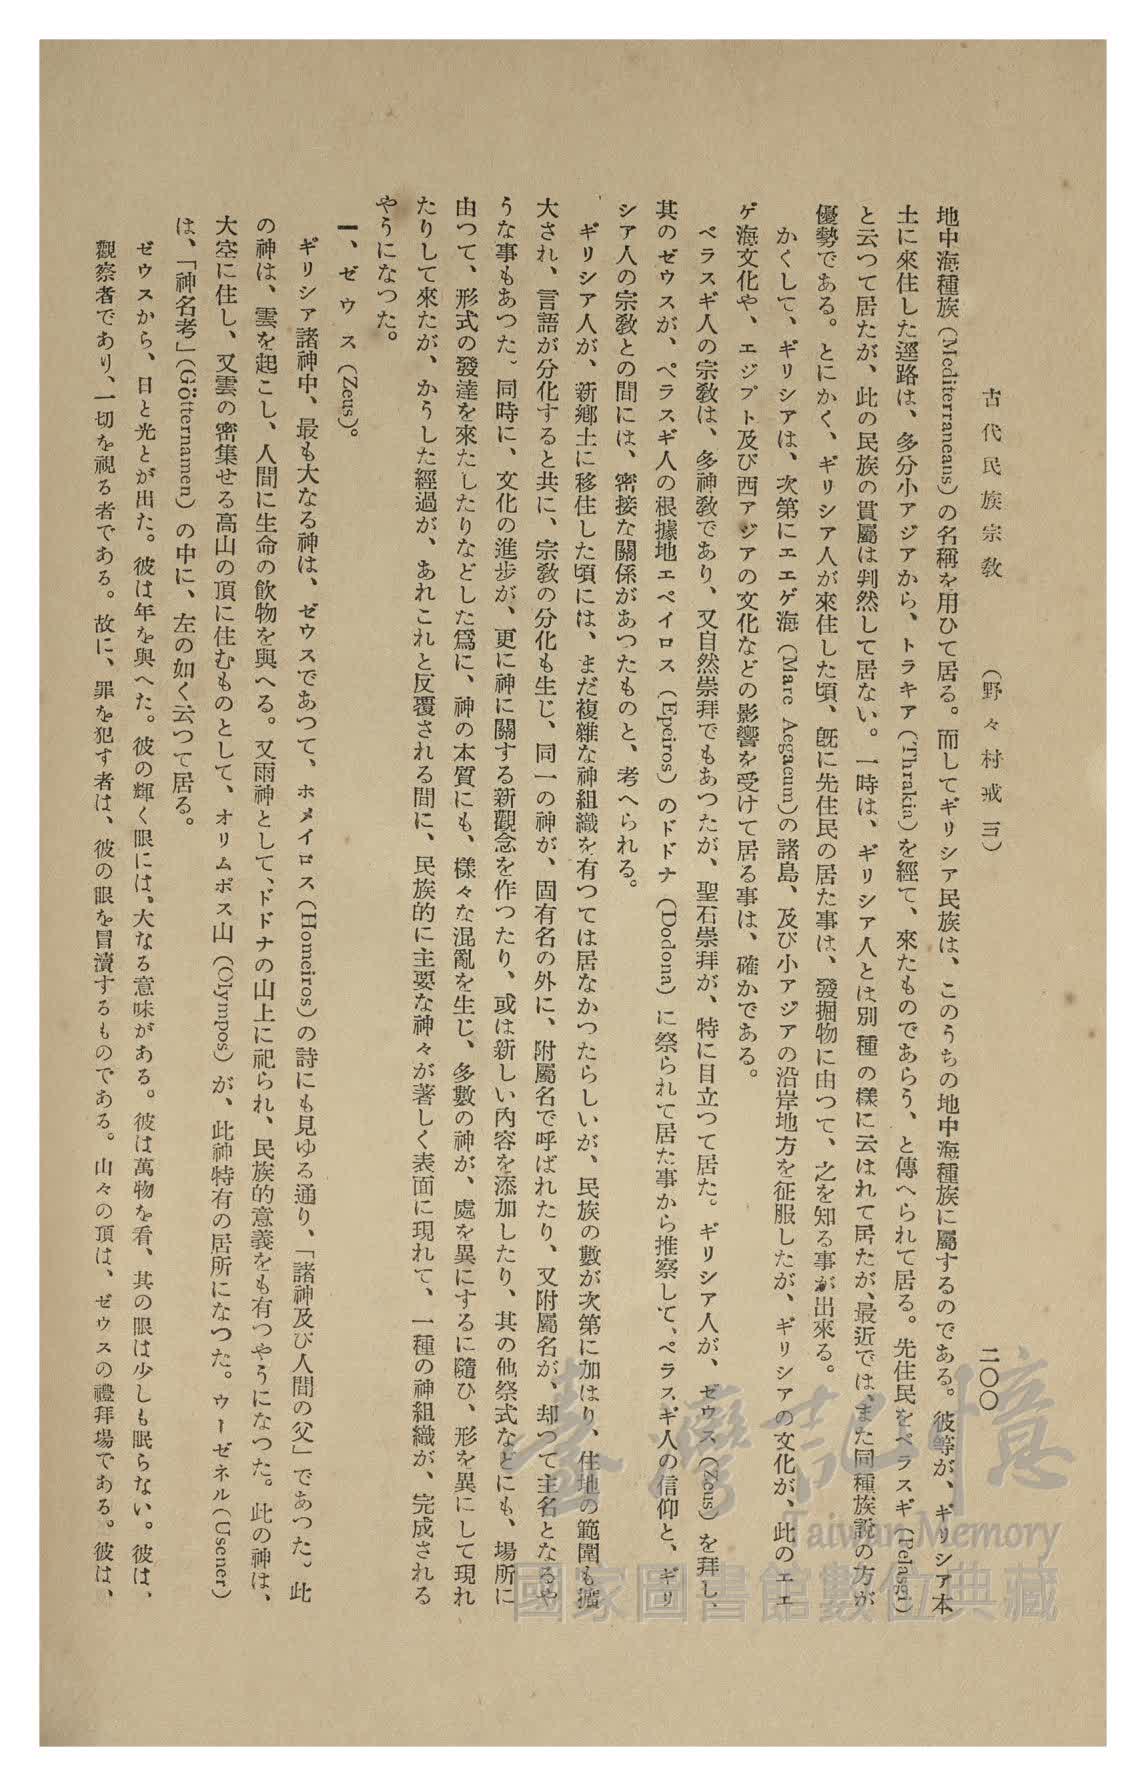 古代民族宗敎　　（野々村戒三）　　二〇〇
地中海種族（Mediterraneans）の名稱を用ひて居る。而してギリシア民族は、このうちの地中海種族に屬するのである。彼等が、ギリシア本
土に來住した逕路は、多分小アジアから、トラキア（Thrakia）を經て、來たものであらう、と傳へられて居る。先住民をペラスギ（Pelasgi）
と云つて居たが、此の民族の貫屬は判然して居ない。一時は、ギリシア人とは別種の樣に云はれて居たが、最近では、また同種族說の方が
優勢である。とにかく、ギリシア人が來住した頃、旣に先住民の居た事は、發掘物に由つて、之を知る事が出來る。
かくして、ギリシアは、次第にエエゲ海（Mare Aegacum）の諸島、及び小アジアの沿岸地方を征服したが、ギリシアの文化が、此のエエ
ゲ海文化や、エジプト及び西アジアの文化などの影響を受けて居る事は、確かである。
ペラスギ人の宗敎は、多神敎であり、又自然崇拜でもあつたが、聖石崇拜が、特に目立つて居た。ギリシア人が、ゼウス（Zeus）を拜し、
其のゼウスが、ペラスギ人の根據地エペイロス（Epeiros）のドドナ（Dodona）に祭られて居た事から推察して、ペラスギ人の信仰と、ギリ
シア人の宗敎との間には、密接な關係があつたものと、考へられる。
ギリシア人が、新鄕土に移住した頃には、まだ複雜な神組織を有つては居なかつたらしいが、民族の數が次第に加はり、住地の範圍も擴
大され、言語が分化すると共に、宗敎の分化も生じ、同一の神が、固有名の外に、附屬名で呼ばれたり、又附屬名が、却つて主名となるや
うな事もあつた。同時に、文化の進步が、更に神に關する新觀念を作つたり、或は新しい內容を添加したり、其の他祭式などにも、場所に
由つて、形式の發達を來たしたりなどした爲に、神の本質にも、樣々な混亂を生じ、多數の神が、處を異にするに隨ひ、形を異にして現れ
たりして來たが、かうした經過が、あれこれと反覆される間に、民族的に主要な神々が著しく表面に現れて、一種の神組織が、完成される
やうになつた。
一、ゼウス（Zeus）。
ギリシア諸神中、最も大なる神は、ゼウスであつて、ホメイロス（Homeiros）の詩にも見ゆる通り、「諸神及び人間の父」であつた。此
の神は、雲を起こし、人間に生命の飮物を與へる。又雨神として、ドドナの山上に祀られ、民族的意義をも有つやうになつた。此の神は、
大空に住し、又雲の密集せる高山の頂に住むものとして、オリムポス山（Olympos）が、此神特有の居所になつた。ウーゼネル（Usener）
は、「神名考」（Götternamen）の中に、左の如く云つて居る。
ゼウスから、日と光とが出た。彼は年を與へた。彼の輝く眼には、大なる意味がある。彼は萬物を看、其の眼は少しも眠らない。彼は、
觀察者であり、一切を視る者である。故に、罪を犯す者は、彼の眼を冒瀆するものである。山々の頂は、ゼウスの禮拜場である。彼は、
臺灣記憶
Taiwan Memory
國家圖書館數位典藏